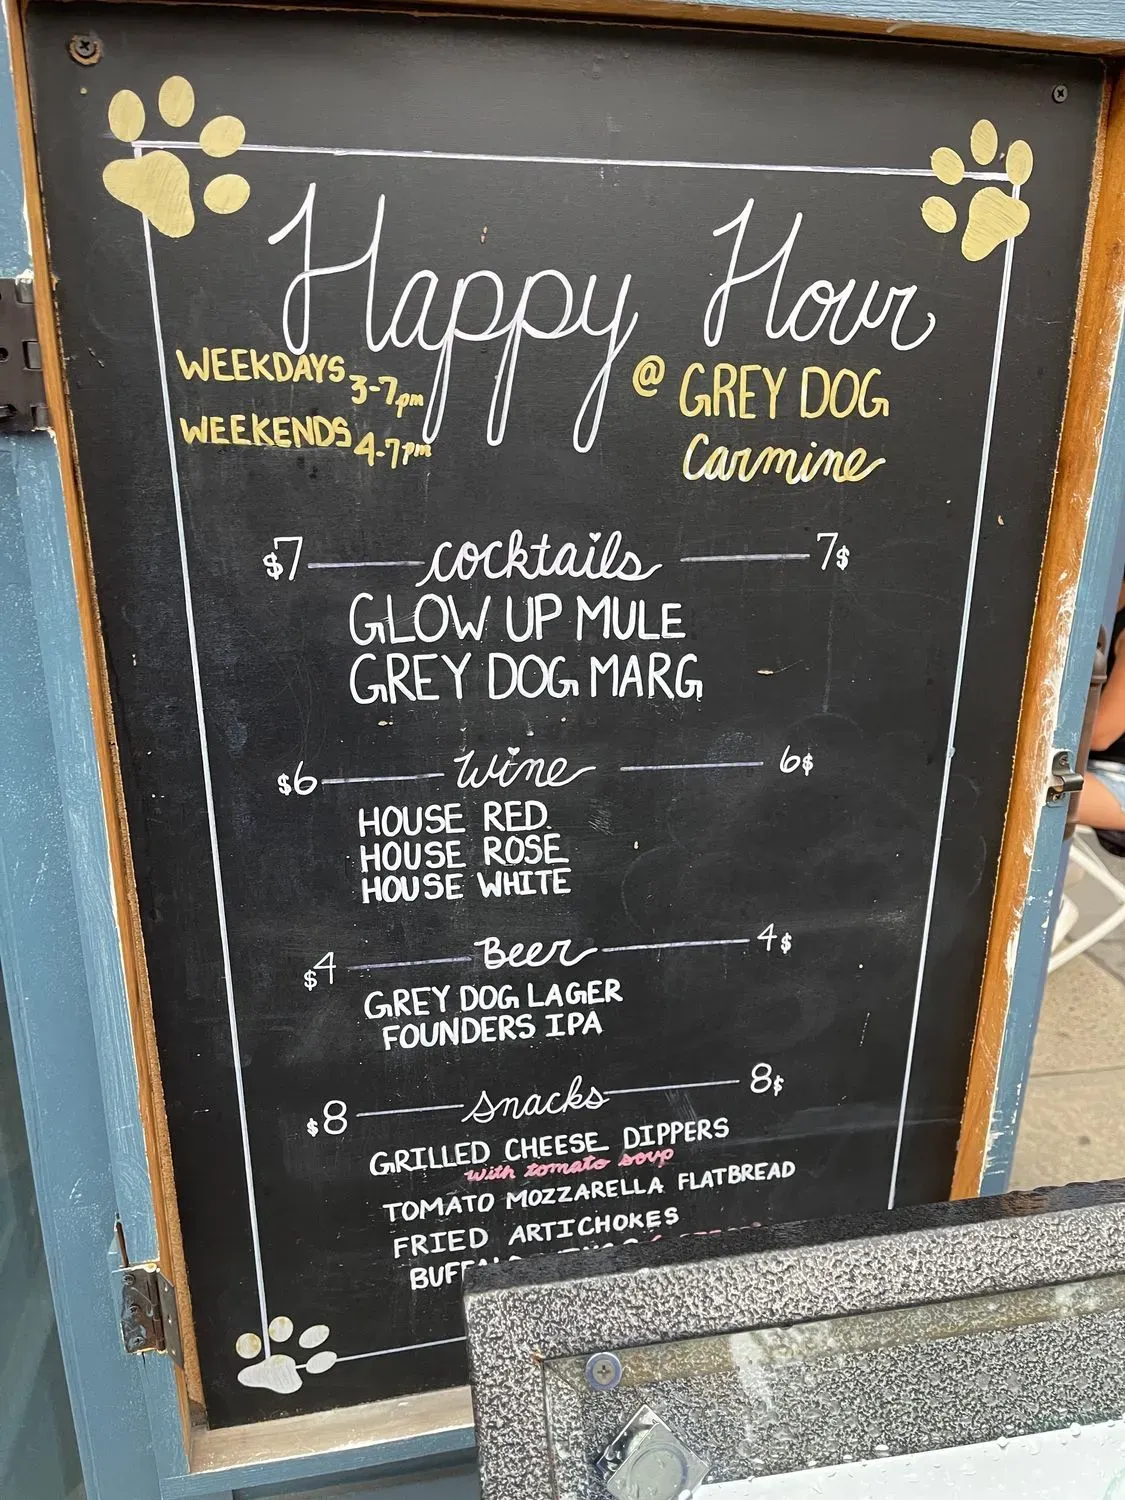 Happy Hour
WEEKDAYS 3-7pm
WEEKENDS 4-7pm
@ GREY DOG
Carmine
$7 cocktails 7$
GLOW UP MULE
GREY DOG MARG
$6 wine 6$
HOUSE RED
HOUSE ROSE
HOUSE WHITE
$4 Beer 4$
GREY DOG LAGER
FOUNDERS IPA
$8 snacks 8$
GRILLED CHEESE DIPPERS
with tomato soup
TOMATO MOZZARELLA FLATBREAD
FRIED ARTICHOKES